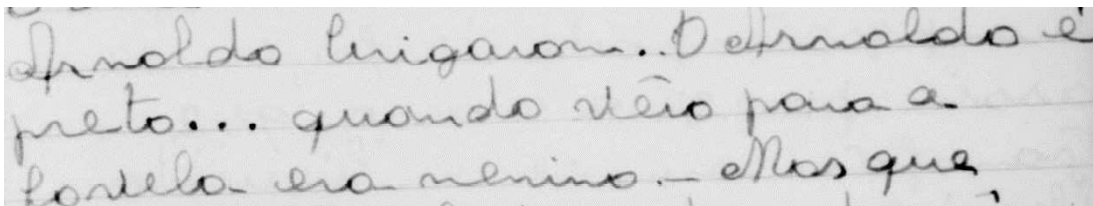 Arnaldo brigaram.. O Arnaldo é
preto... quando vêio para a
favela era menino.— Mas que